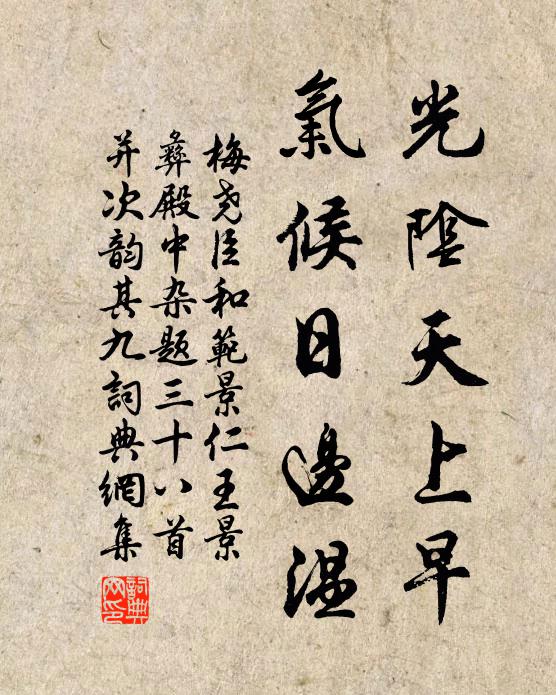 光陰天上早
氣候日邊温
梅尧臣和範景仁王景
彝殿中杂题三十八首
并次韵其九詞典網集
詞典網印